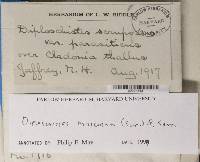 HERBARIUM OF L. W. RIDDLE
Diploschistes scruposus
var. parasiticus
over Cladonia thallus
Jaffrey, N. H. Aug. 1917
FARLOW HERBARIUM HARVARD UNIVERSITY
Diploschistes muscorum (Scop.) R. Sant.
ANNOTATED BY Philip F. May